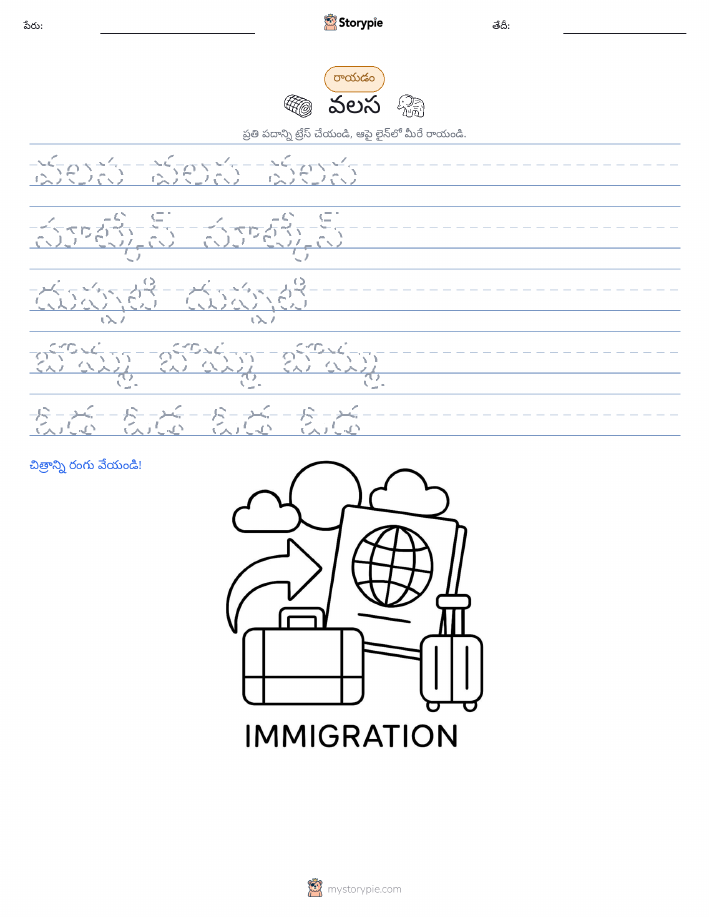 పేరు:
Storypie
తేదీ:
రాయడం
వలస
ప్రతి పదాన్ని ట్రేస్ చేయండి, ఆపై లైన్‌లో మీరే రాయండి.
వలస వలస వలస
సూట్కేస్ సూట్కేస్
దుప్పటి దుప్పటి
బొమ్మ బొమ్మ బొమ్మ
ఓడ ఓడ ఓడ ఓడ
చిత్రాన్ని రంగు వేయండి!
IMMIGRATION
mystorypie.com